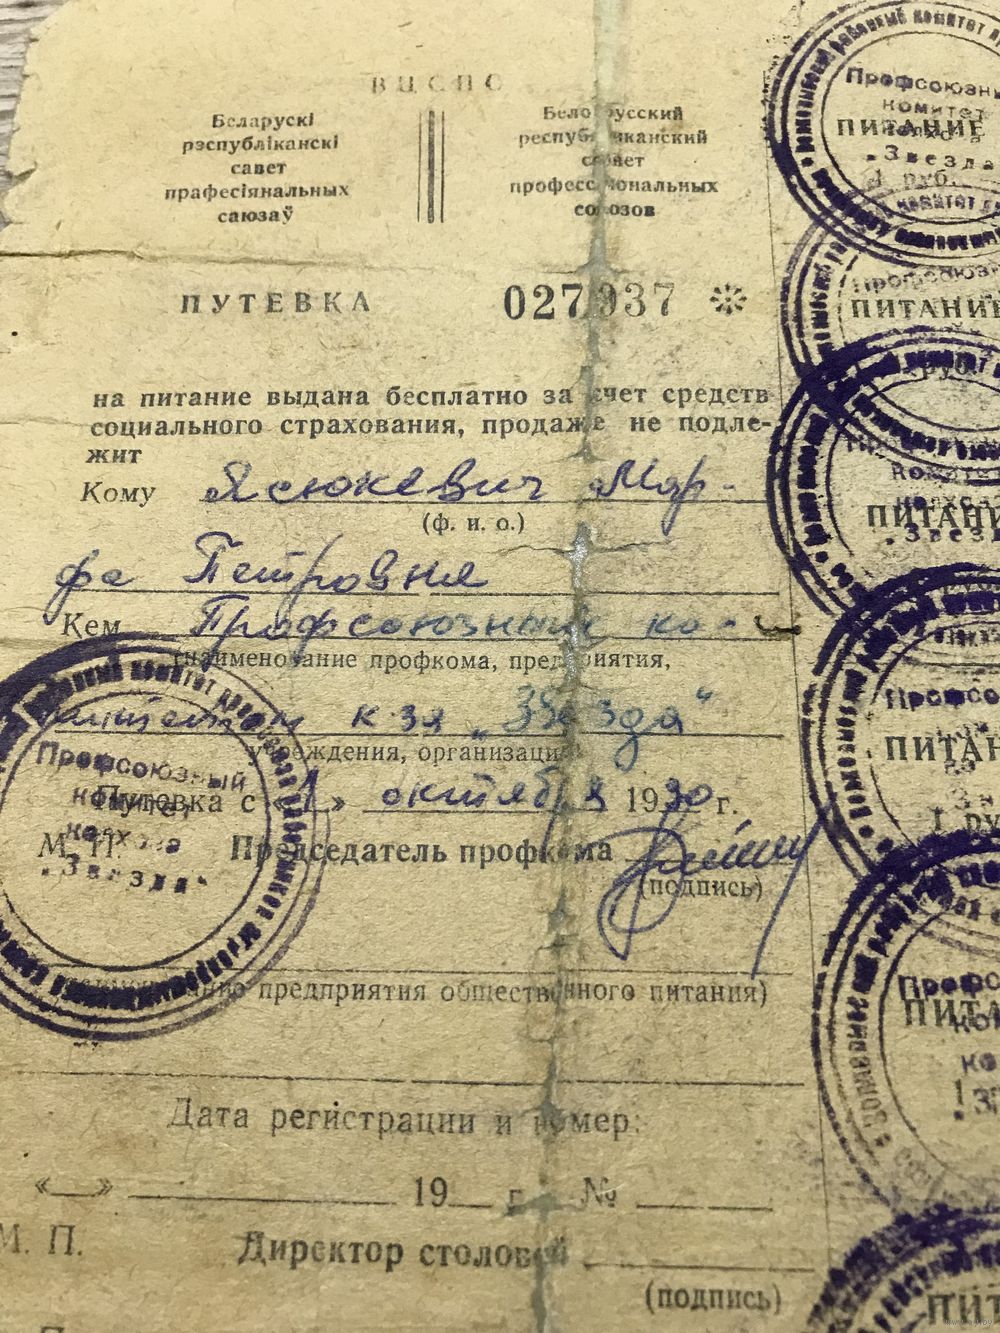 ВЦСПС
Беларускі
рэспубліканскі
савет
прафесіянальных
саюзаў
Белорусский
республиканский
совет
профессиональных
союзов
ПУТЕВКА 027937
на питание выдана бесплатно за счет средств
социального страхования, продаже не подле-
жит
Кому Ясюкевич Мар-
(ф. и. о.)
фе Петровне
Кем Профсоюзным ко-
(наименование профкома, предприятия,
митетом к-за „Звезда"
учреждения, организации
Путевка с «1» октября 1980 г.
М. П. Председатель профкома
(подпись)
предприятия общественного питания)
Дата регистрации и номер:
«__» 19__ г. №
М. П. Директор столовой
(подпись)
Профсоюзный
комитет
колхоза
"Звезда"
Профсоюзный
комитет
ПИТАНИЕ
"Звезда
1 руб.
ПИТАНИЕ
руб.
ПИТАНИ
ПИТАН
1 ру
ПИТА
ПИТ